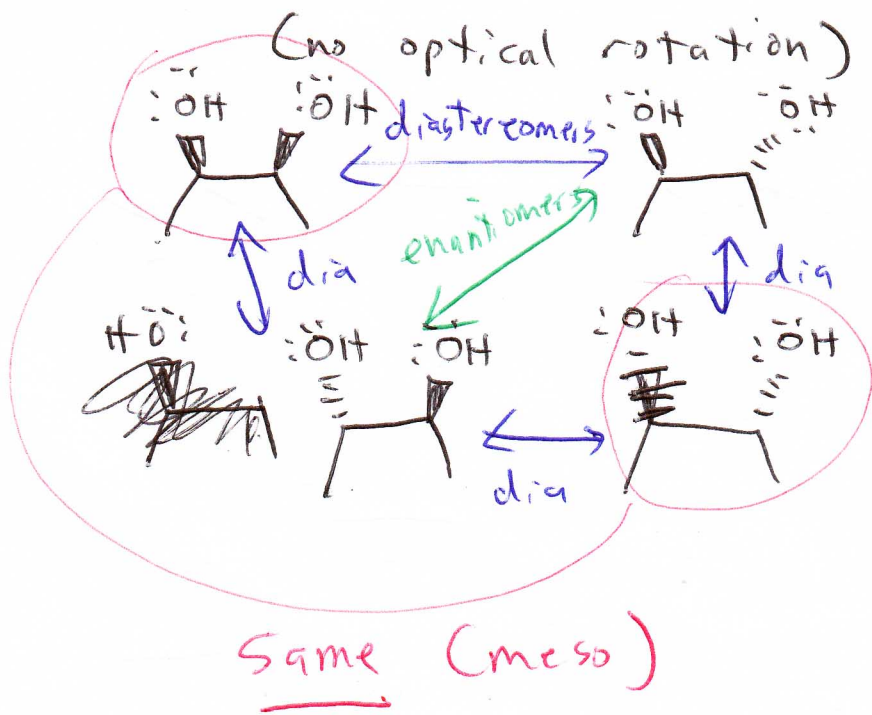 (no optical rotation)
:ÖH :ÖH diastereomers :ÖH ÖH
enantiomers
dia dia
HÖ: :ÖH :ÖH :ÖH :ÖH
dia
Same (meso)